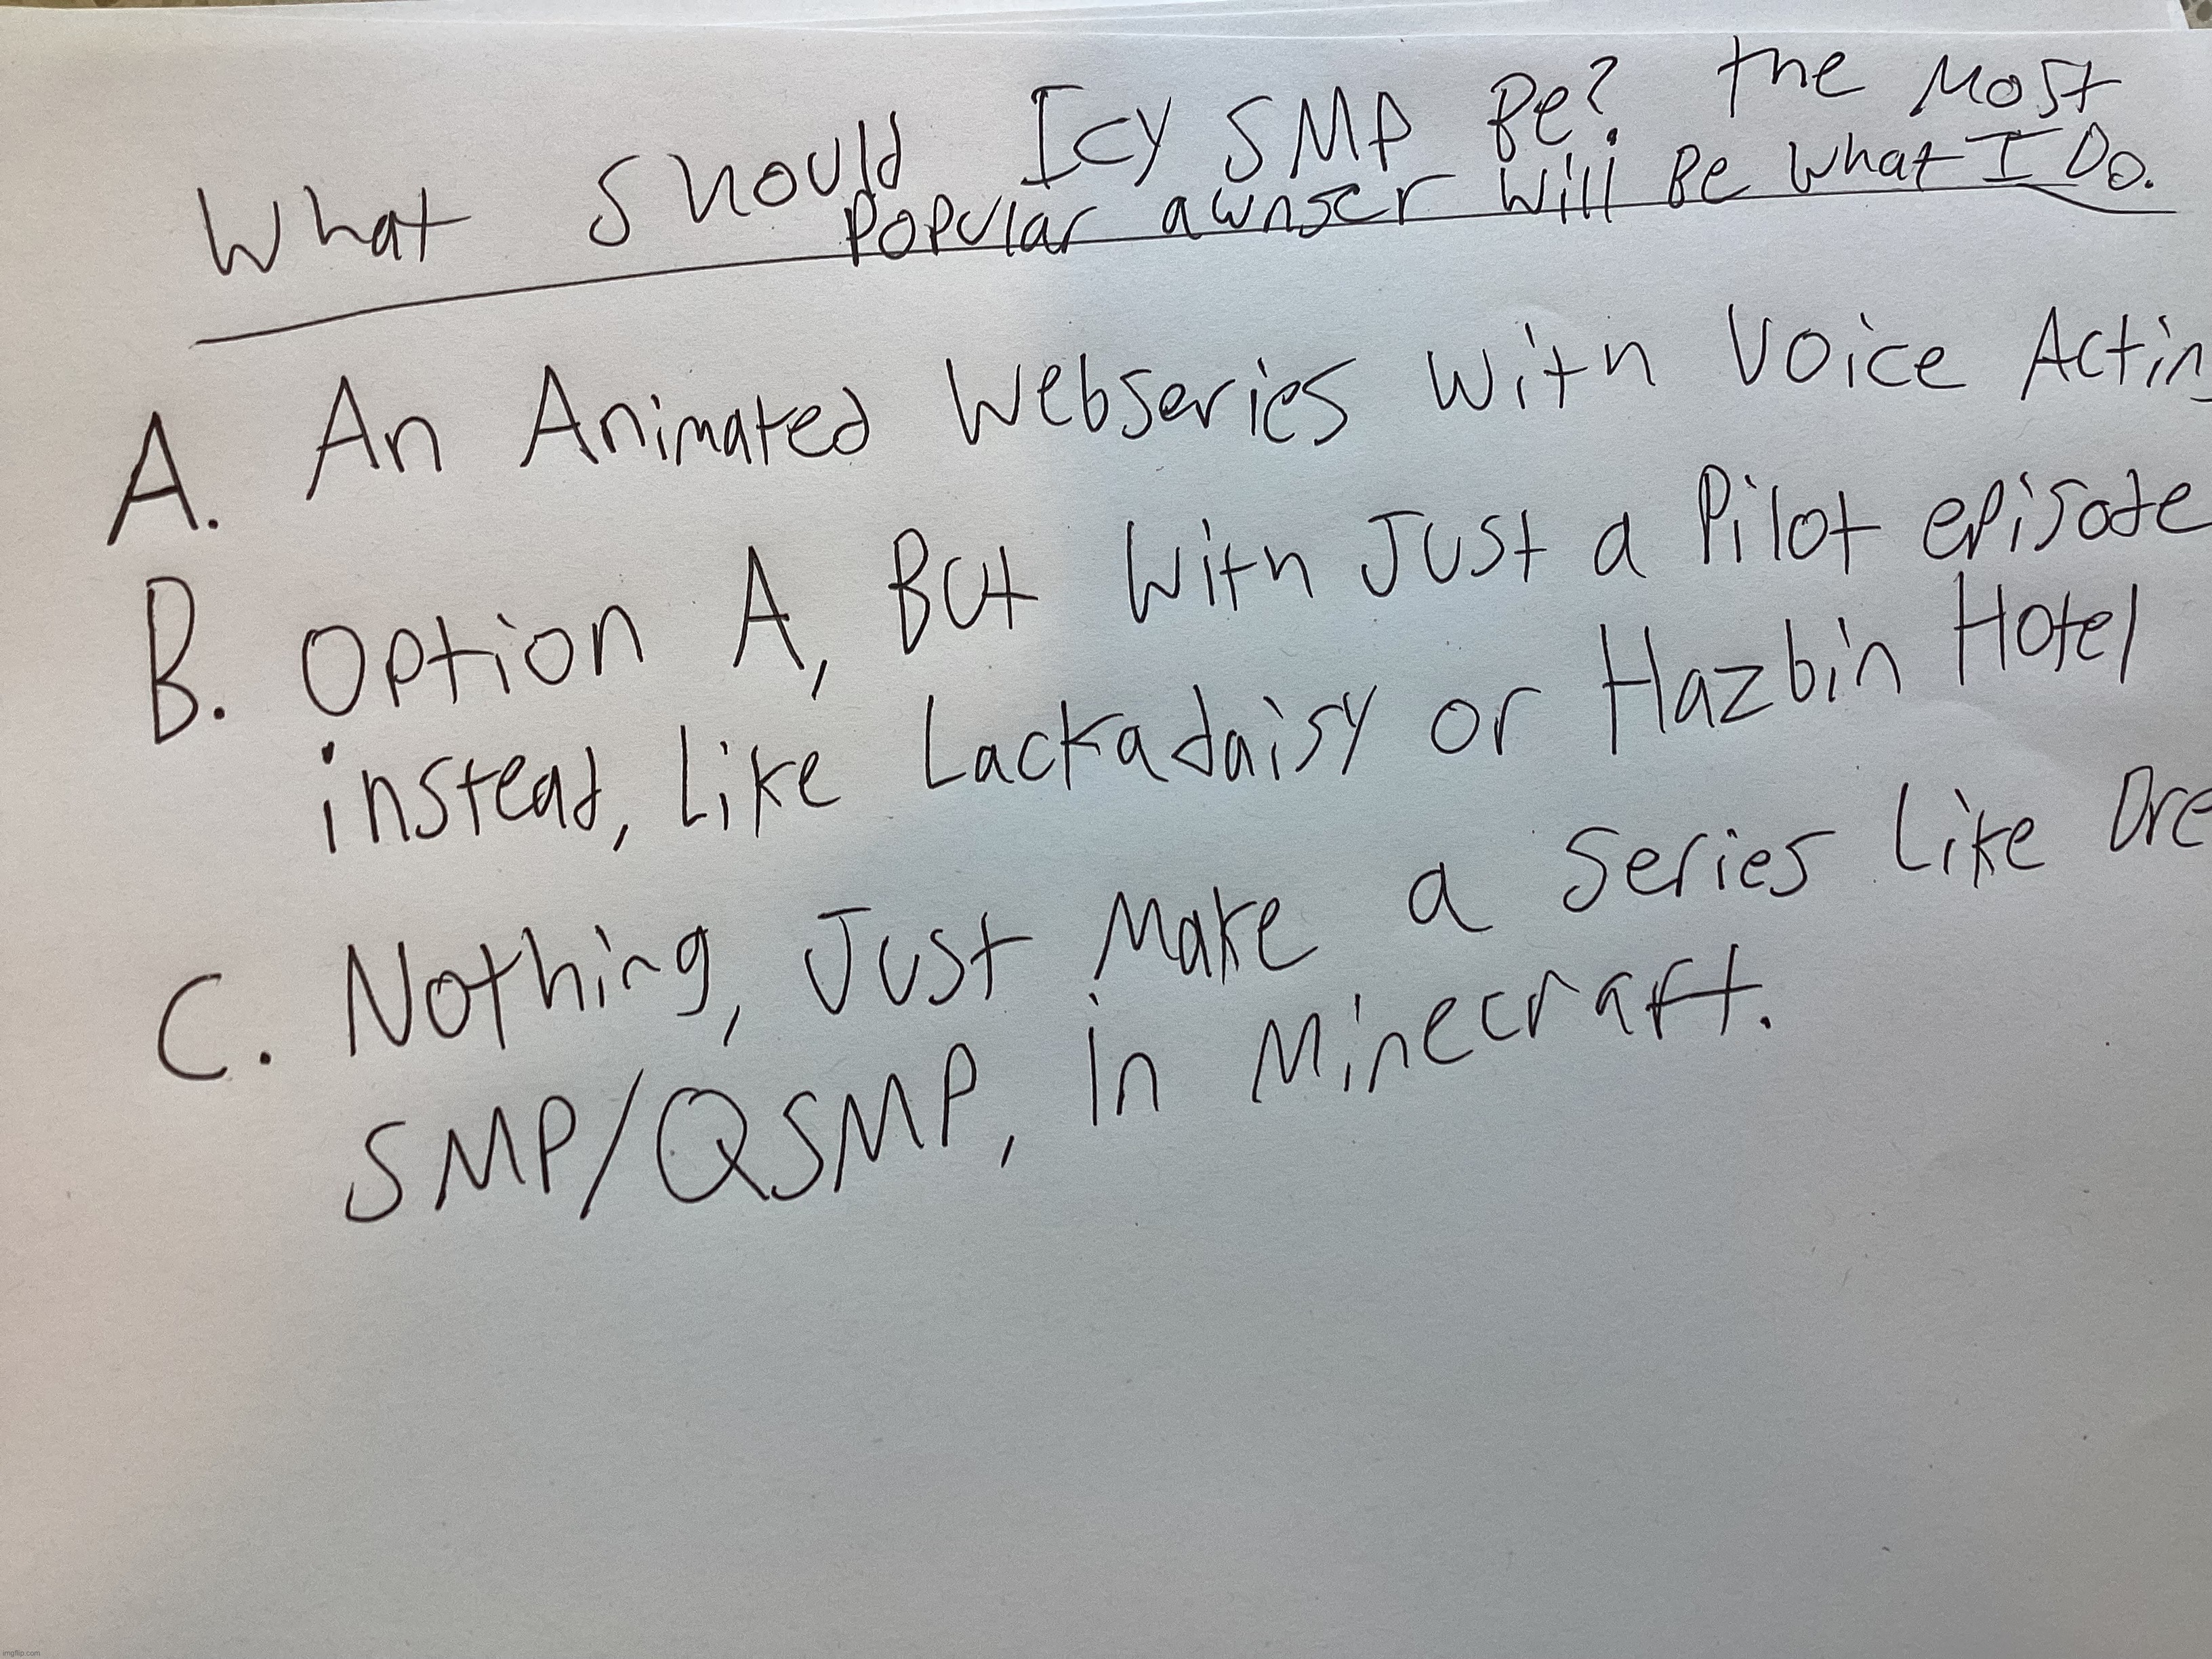 What Should Icy SMP Be? The Most
Popular awnser Will Be What I Do.
A. An Animated Webseries With Voice Actin
B. Option A, But With Just a Pilot episode
instead, Like Lackadaisy or Hazbin Hotel
C. Nothing, Just Make a Series Like Dre
SMP/QSMP, in Minecraft.
imgflip.com